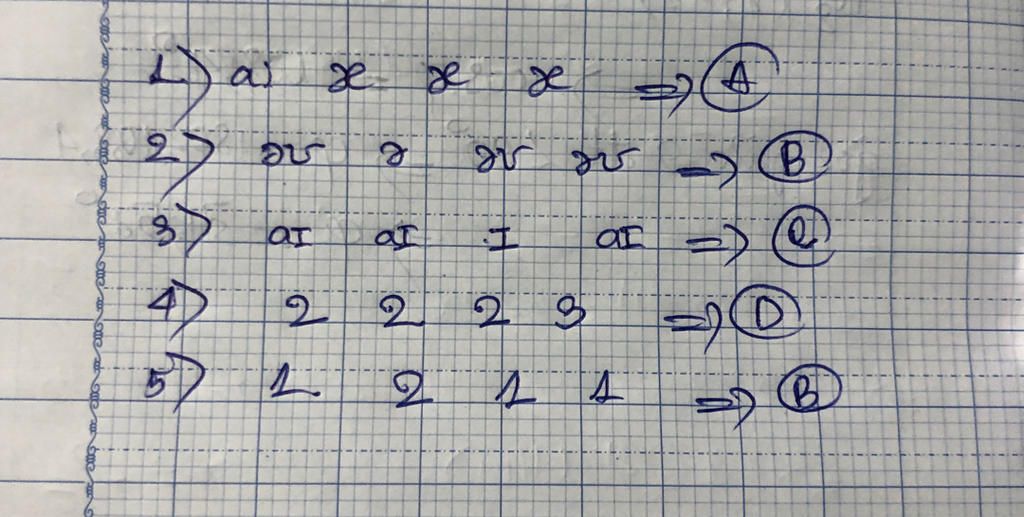 1) a) æ æ æ => A
2) əʊ ə əʊ əʊ => B
3) aI aI I aI => C
4) 2 2 2 3 => D
5) 1 2 1 1 => B